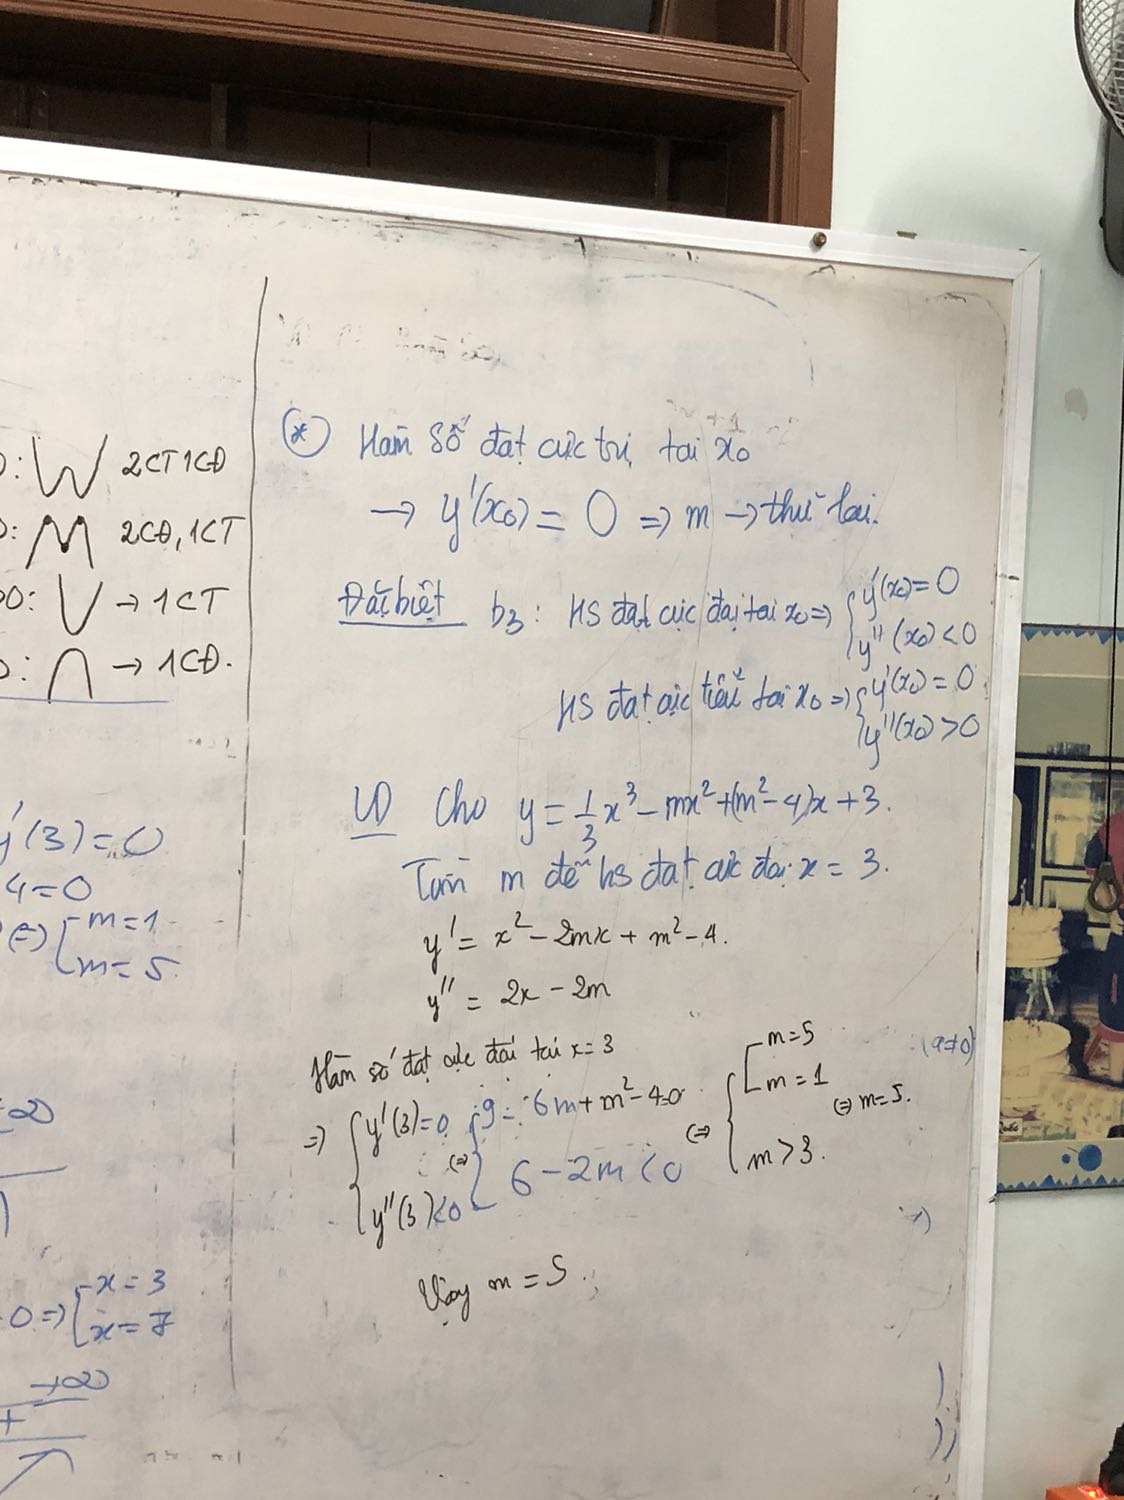 : 2CT 1CĐ
: 2CĐ, 1CT
0: → 1CT
: → 1CĐ.
y'(3) = 0
4 = 0
(⇔) [ m = 1
m = 5
+∞
0 ⇒ [ x = 3
x = 7
+∞
+
(*) Hàm số đạt cực trị tại x₀
→ y'(x₀) = 0 ⇒ m → thử lại.
Đặc biệt b3: HS đạt cực đại tại x₀ ⇒ { y'(x₀) = 0
y''(x₀) < 0
HS đạt cực tiểu tại x₀ ⇒ { y'(x₀) = 0
y''(x₀) > 0
VD Cho y = 1/3 x³ - mx² + (m² - 4)x + 3.
Tìm m để hs đạt cực đại x = 3.
y' = x² - 2mx + m² - 4.
y'' = 2x - 2m
Hàm số đạt cực đại tại x = 3
⇒ { y'(3) = 0 (⇔) { 9 - 6m + m² - 4 = 0 (⇔) { [ m = 5
m = 1 (⇔) m = 5.
y''(3) < 0 6 - 2m < 0 m > 3.
(a ≠ 0)
Vậy m = 5.